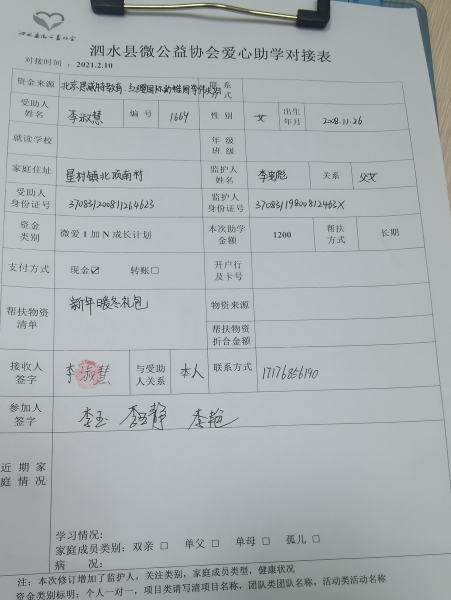 泗水县微公益协会
泗水县微公益协会爱心助学对接表
对接时间：2021.2.10
资金来源 联系方式
受助人姓名 李淑慧 编号 1664 性别 女 出生年月 2008.11.26
就读学校 年级班级
家庭住址 星村镇北陈南村 监护人姓名 关系 父女
受助人身份证号 370831200811264623 监护人身份证号 37083119800812463X
资金类别 微爱1加N成长计划 本次助学金额 1200 帮扶方式 长期
支付方式 现金☑ 转账□ 开户行及卡号
帮扶物资清单 新年暖冬礼包 物资来源
帮扶物资折合金额
接收人签字 李淑慧 与受助人关系 本人 联系方式 17176856190
参加人签字 李玉 李静 李艳
近期家庭情况
学习情况：
家庭成员类别：双亲□ 单父□ 单母□ 孤儿□
病 况：
注：本次修订增加了监护人，关注类别，家庭成员类型，健康状况
资金类别标明：个人一对一，项目类请写清项目名称，团队类团队名称，活动类活动名称